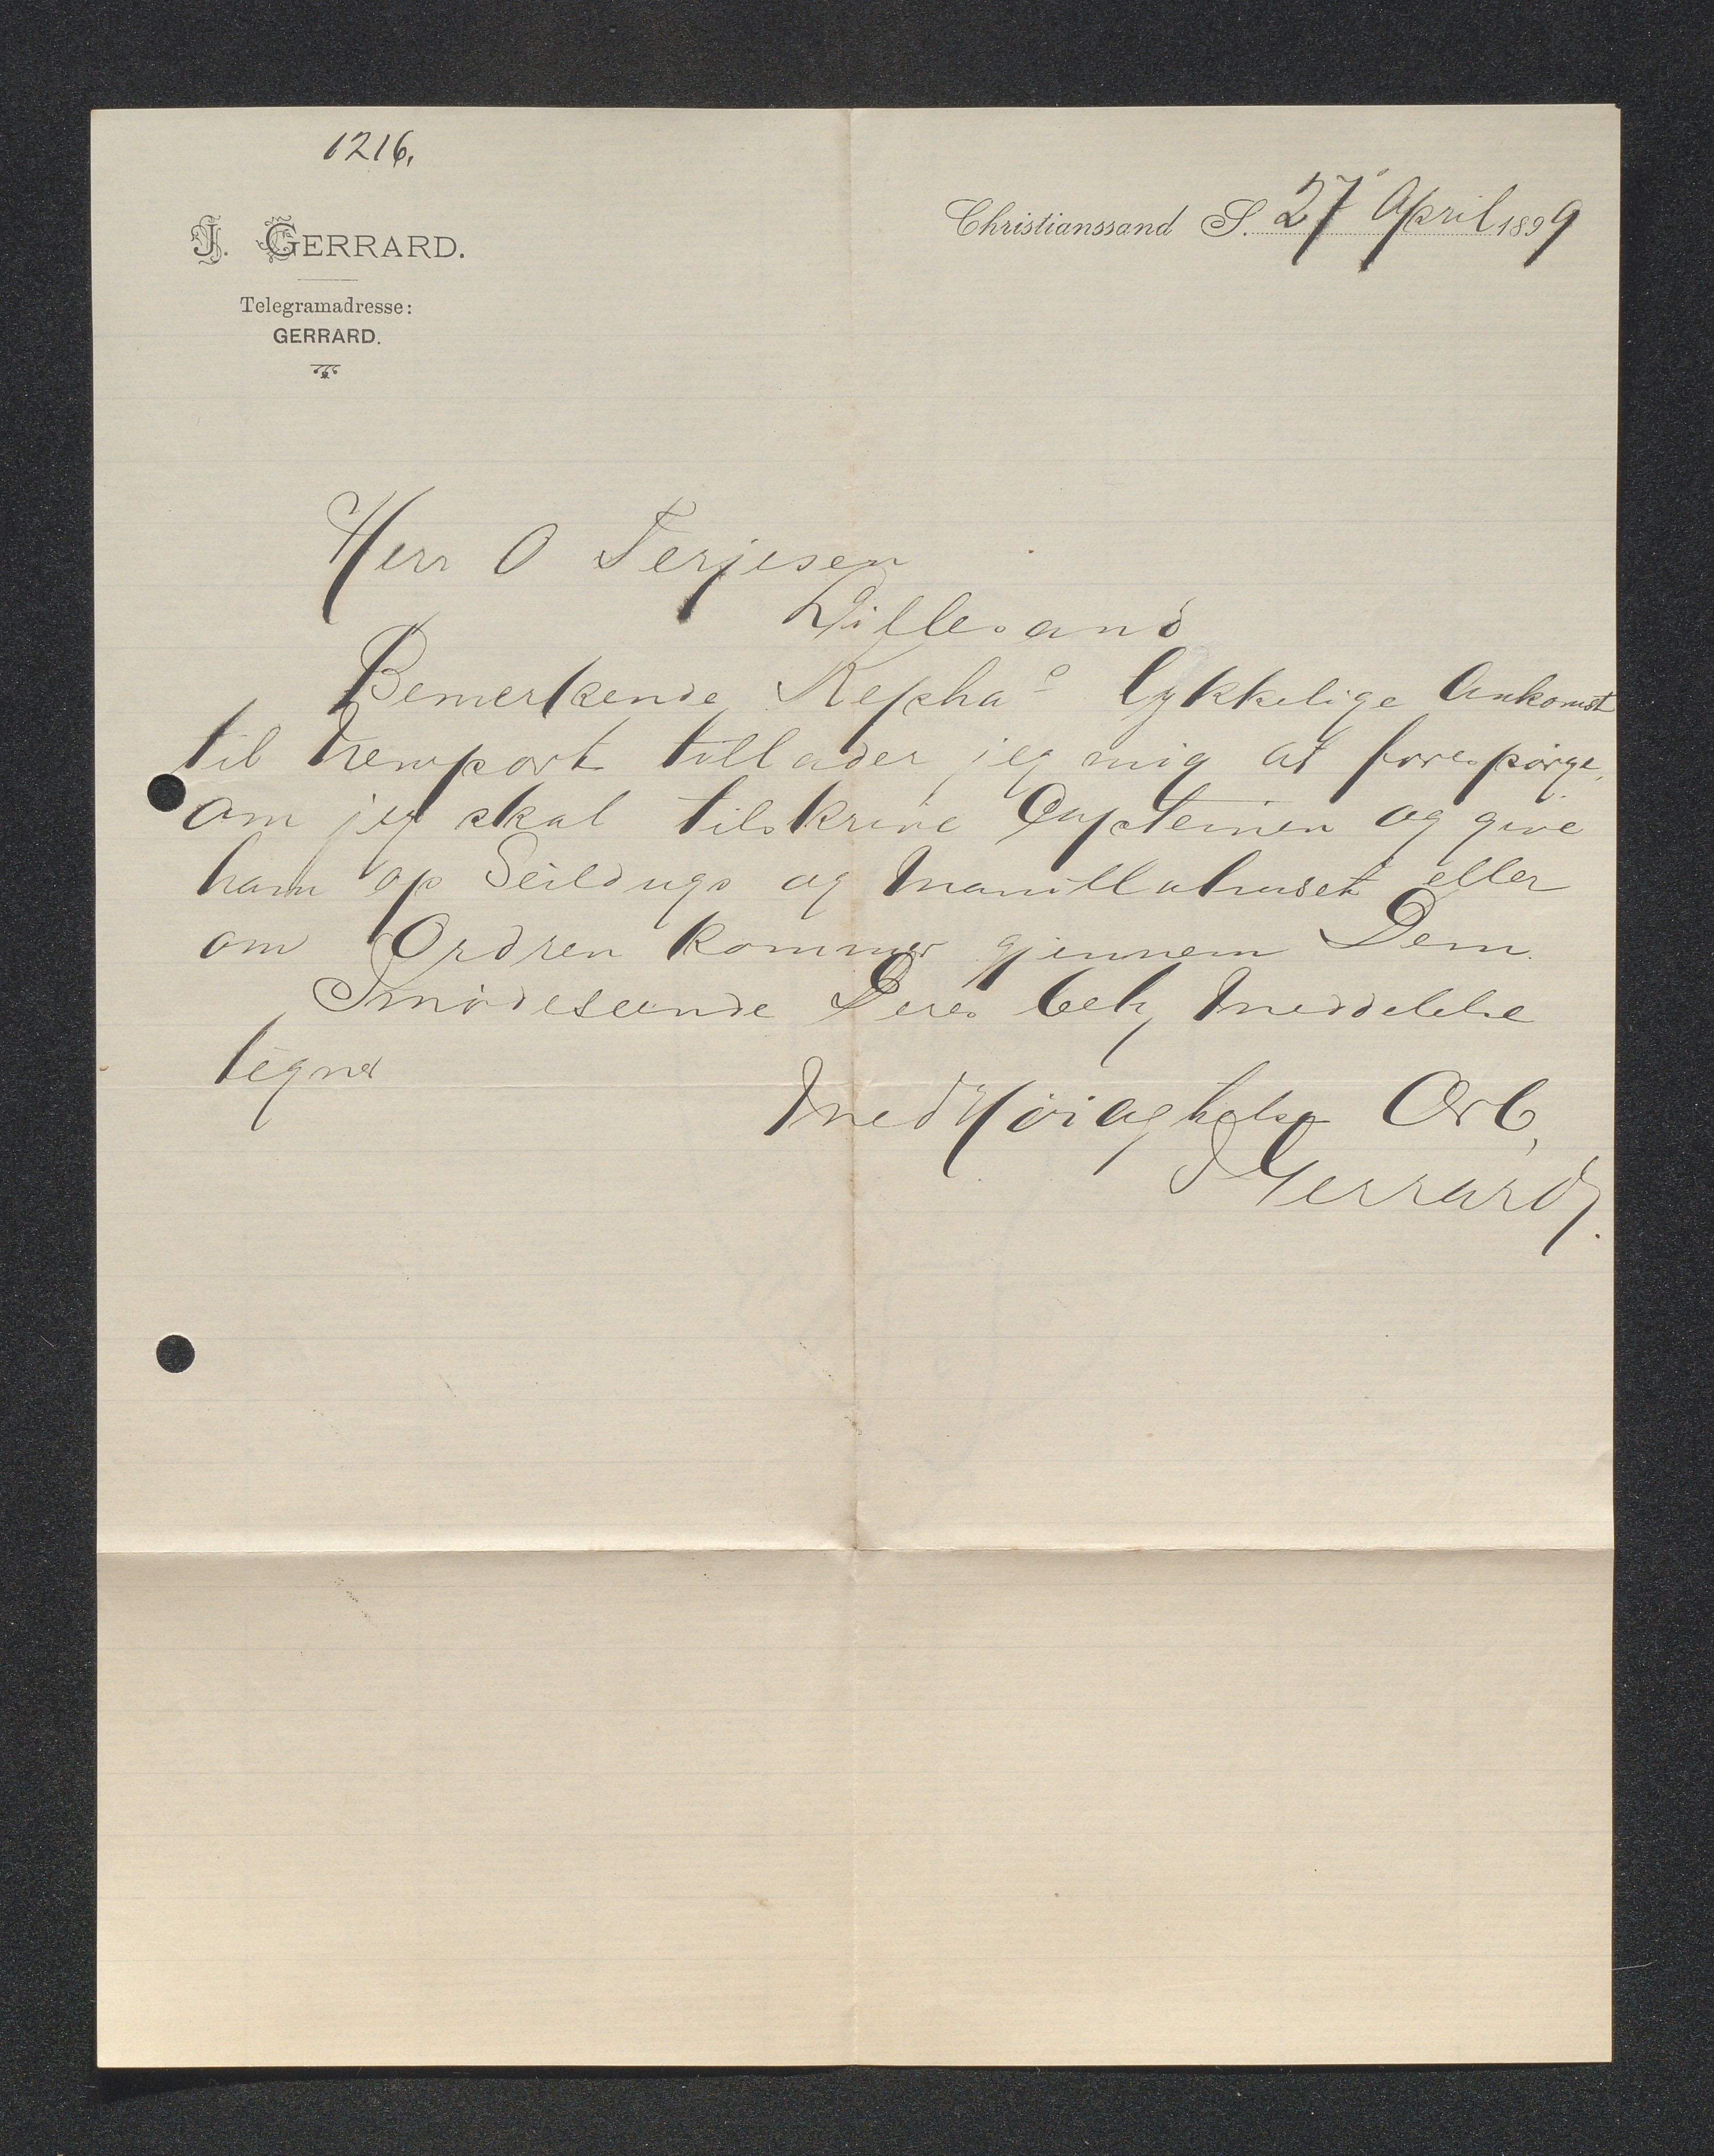 1216.
J. GERRARD.
Telegramadresse:
GERRARD.
Christianssand S. 27 April 1899
Herr O Terjesen
Lillesand
Bemerkende Kepha's lykkelige Ankomst
til Newport tillader jeg mig at forespørge,
om jeg skal tilskrive Capteinen og give
ham op Seildugs og Manillahuset eller
om Ordren kommer gjennem Dem.
Imødeseende Deres beh Meddelelse
tegner
Med Høiagtelse Erb,
J Gerrard.